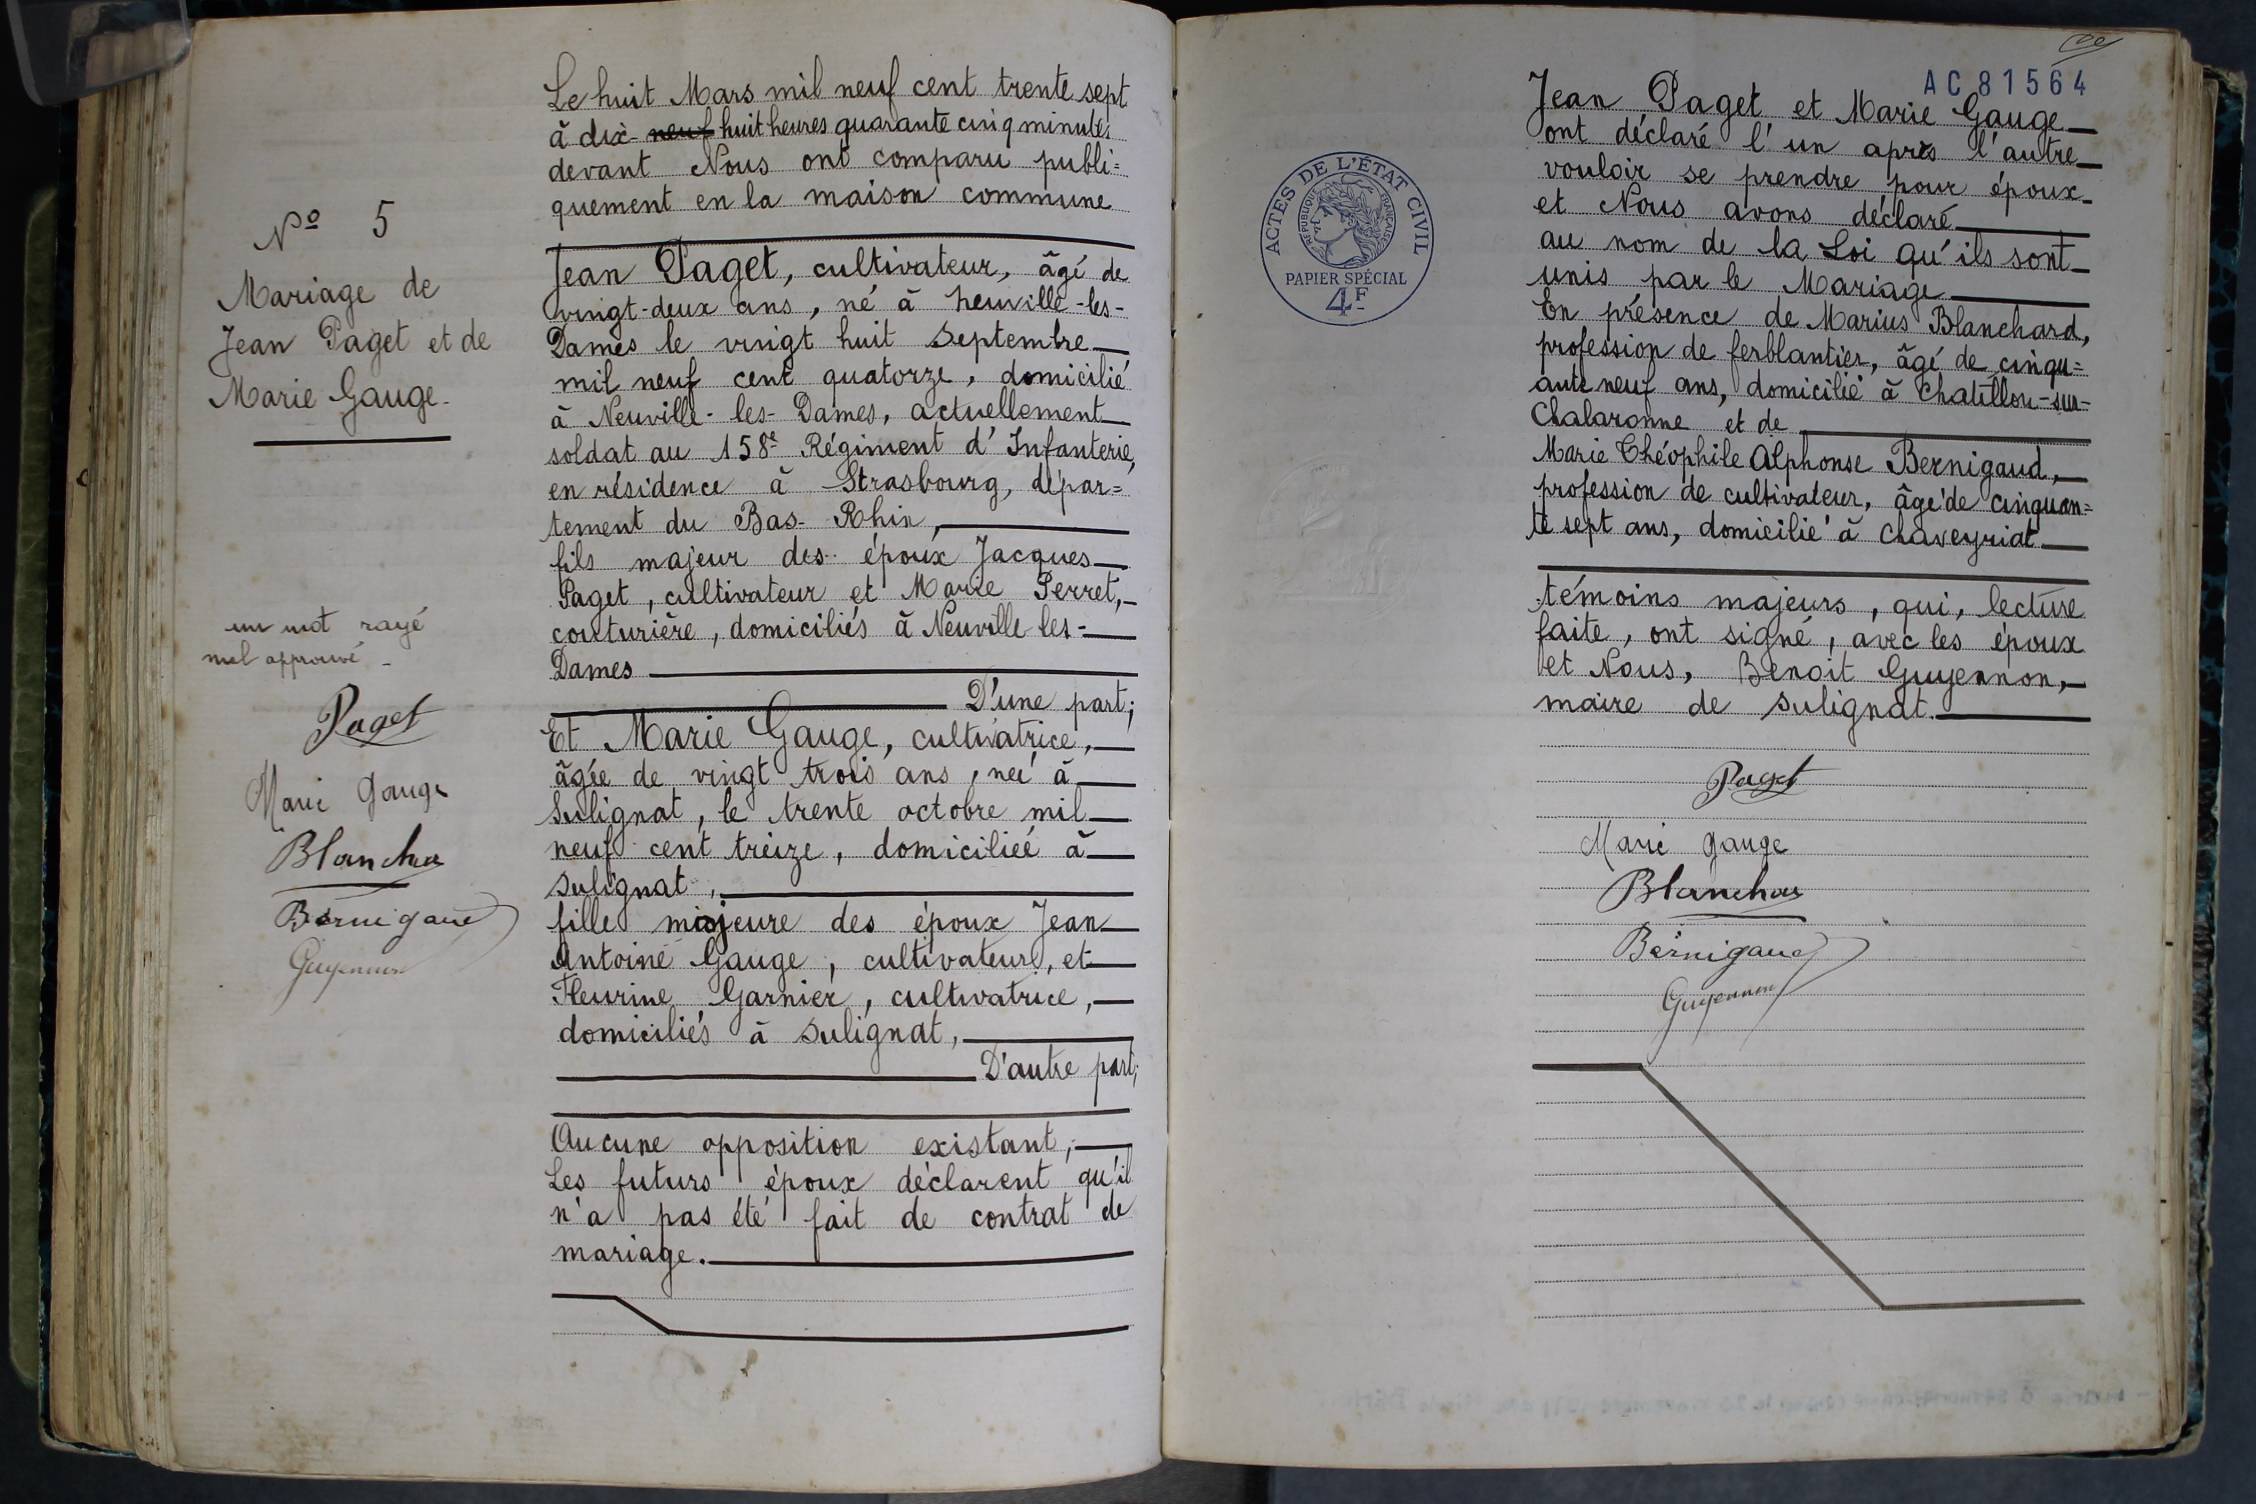 Nº 5
Mariage de
Jean Paget et de
Marie Gauge.
un mot rayé
nul approuvé
Paget
Marie Gauge
Blanchar
Bernigaud
Guyennon
Le huit Mars mil neuf cent trente sept
à dix-neuf huit heures quarante cinq minutes
devant Nous ont comparu publi=
quement en la maison commune
Jean Paget, cultivateur, âgé de
vingt-deux ans, né à Neuville-les-
Dames le vingt huit Septembre
mil neuf cent quatorze, domicilié
à Neuville-les-Dames, actuellement
soldat au 158e Régiment d'Infanterie,
en résidence à Strasbourg, dépar=
tement du Bas-Rhin,
fils majeur des époux Jacques
Paget, cultivateur et Marie Perret,
couturière, domiciliés à Neuville les-
Dames
D'une part;
Et Marie Gauge, cultivatrice,
âgée de vingt trois ans, neé à
Sulignat, le trente octobre mil
neuf cent treize, domiciliée à
Sulignat,
fille majeure des époux Jean
Antoine Gauge, cultivateur, et
Fleurine Garnier, cultivatrice,
domiciliés à Sulignat,
D'autre part;
Aucune opposition existant,
Les futurs époux déclarent qu'il
n'a pas été fait de contrat de
mariage.
AC 81564
ACTES DE L'ÉTAT CIVIL
RÉPUBLIQUE FRANÇAISE
PAPIER SPÉCIAL
4F
Jean Paget et Marie Gauge
ont déclaré l'un après l'autre
vouloir se prendre pour époux
et Nous avons déclaré
au nom de la Loi qu'ils sont
unis par le Mariage
En présence de Marius Blanchard,
profession de ferblantier, âgé de cinqu=
ante neuf ans, domicilié à Chatillon-sur-
Chalaronne et de
Marie Théophile Alphonse Bernigaud,
profession de cultivateur, âgé de cinquan=
te sept ans, domicilié à Chaveyriat
témoins majeurs, qui, lecture
faite, ont signé, avec les époux
et Nous, Benoit Guyennon,
maire de Sulignat.
Paget
Marie Gauge
Blanchar
Bernigaud
Guyennon